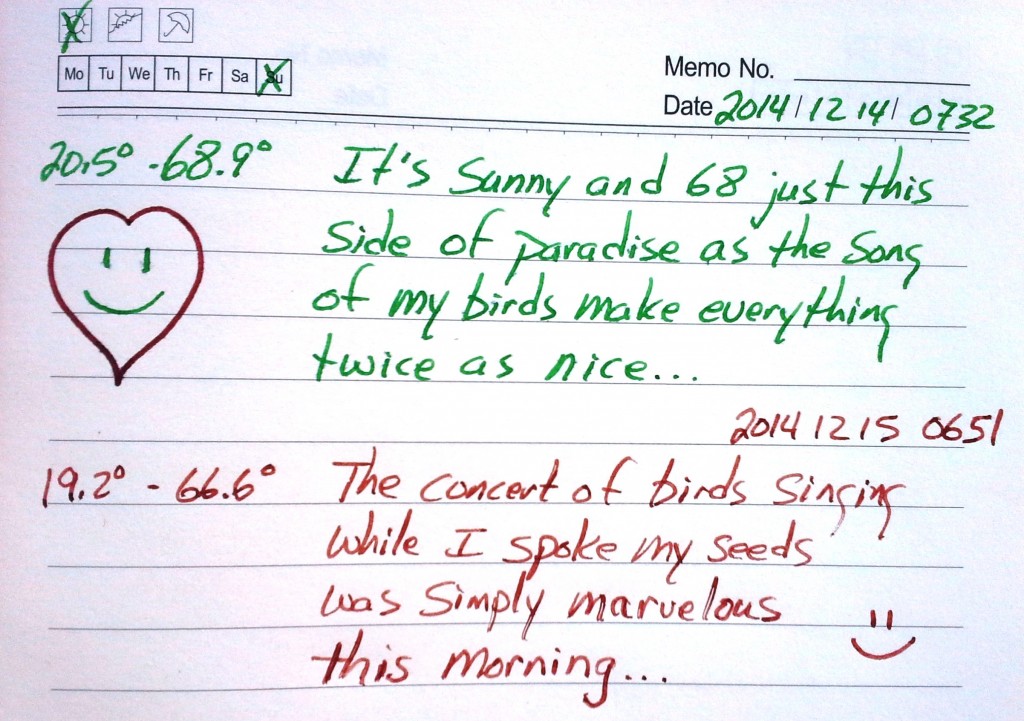 Mo Tu We Th Fr Sa Su
Memo No.
Date 2014/12 14/ 0732
20.5° - 68.9°
It's Sunny and 68 just this
side of paradise as the song
of my birds make everything
twice as nice...
2014 12 15 0651
19.2° - 66.6°
The concert of birds singing
while I spoke my seeds
was simply marvelous
this morning...